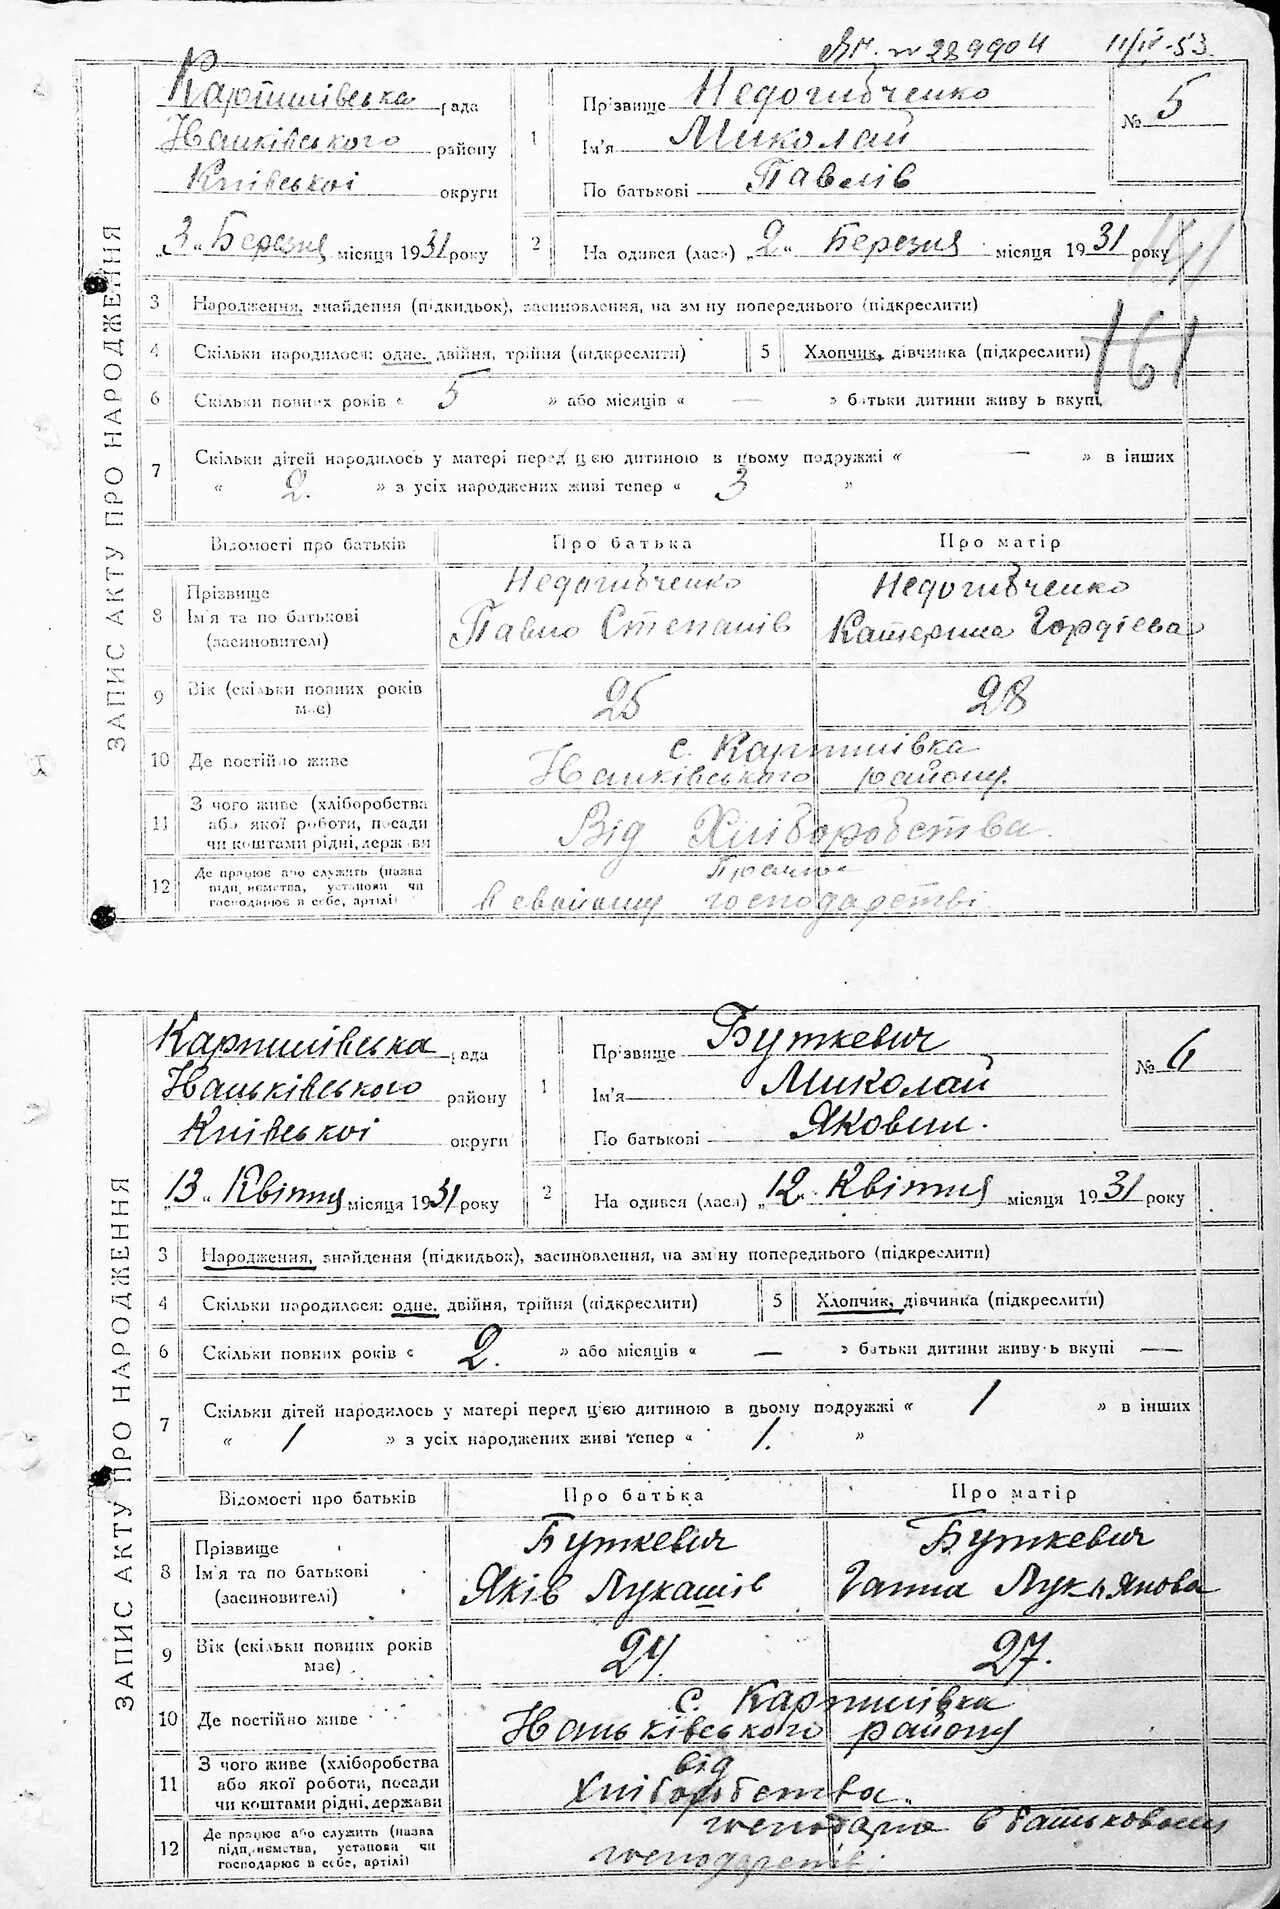 ВН. № 289904 11/IV-53
ЗАПИС АКТУ ПРО НАРОДЖЕННЯ
Карпилівська рада
Ханківського району
Київської округи
„3“ Березня місяця 1931 року
1 Прізвище Недогибченко
Ім'я Миколай
По батькові Павлів
№ 5
2 На одився (лася) „2“ Березня місяця 1931 року
161
3 Народження, знайдення (підкидьок), засиновлення, на зміну попереднього (підкреслити)
4 Скільки народилося: одне, двійня, трійня (підкреслити) 5 Хлопчик, дівчинка (підкреслити)
6 Скільки повних років « 5 » або місяців « — » батьки дитини живу ь вкупі
7 Скільки дітей народилось у матері перед цією дитиною в цьому подружжі « — » в інших
« 2. » з усіх народжених живі тепер « 3 »
Відомості про батьків Про батька Про матір
8 Прізвище Ім'я та по батькові (засиновителі)
Недогибченко Недогибченко
Павло Степанів Катерина Гордієва
9 Вік (скільки повних років має) 25 28
10 Де постійно живе с. Карпилівка
Ханківського району.
11 З чого живе (хліборобства або якої роботи, посади чи коштами рідні, держави
Від Хліборобства.
12 Де працює або служить (назва підприємства, установи чи господарює в себе, артілі)
Працює
в свойому господарстві
ЗАПИС АКТУ ПРО НАРОДЖЕННЯ
Карпилівська рада
Ханьківського району
Київської округи
„13“ Квітня місяця 1931 року
1 Прізвище Буткевич
Ім'я Миколай
По батькові Яковил.
№ 6
2 На одився (лася) „12“ Квітня місяця 1931 року
3 Народження, знайдення (підкидьок), засиновлення, на зміну попереднього (підкреслити)
4 Скільки народилося: одне, двійня, трійня (підкреслити) 5 Хлопчик, дівчинка (підкреслити)
6 Скільки повних років « 2. » або місяців « — » батьки дитини живу ь вкупі —
7 Скільки дітей народилось у матері перед цією дитиною в цьому подружжі « 1 » в інших
« 1 » з усіх народжених живі тепер « 1. »
Відомості про батьків Про батька Про матір
8 Прізвище Ім'я та по батькові (засиновителі)
Буткевич Буткевич
Яків Лукашів Ганна Лукьянова
9 Вік (скільки повних років має) 24. 27.
10 Де постійно живе с. Карпилівка
Ханьківського району
11 З чого живе (хліборобства або якої роботи, посади чи коштами рідні, держави
від
Хліборобства.
12 Де працює або служить (назва підприємства, установи чи господарює в себе, артілі)
господарює в батьковому
господарстві.